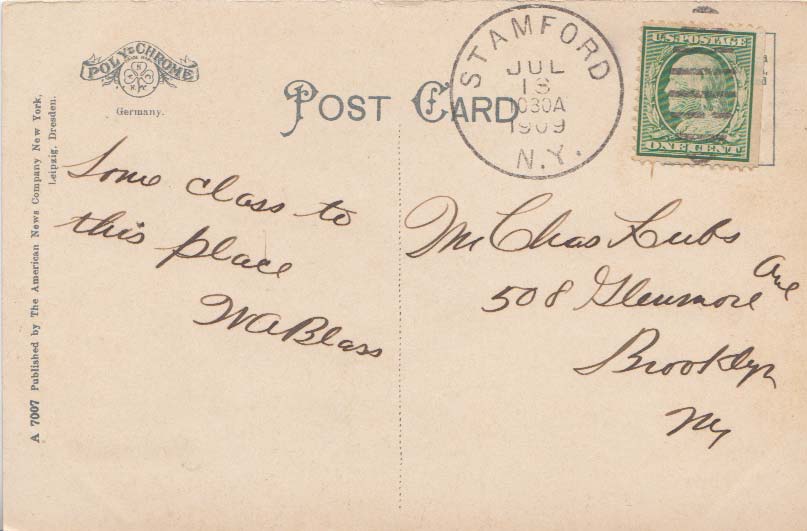 POLY-CHROME
Germany.
POST CARD
STAMFORD
JUL
1030A
1909
N.Y.
U.S. POSTAGE
ONE CENT
A 7007 Published by The American News Company New York,
Leipzig, Dresden.
Some class to
this place
WA Blass
Mr Chas Kubs
508 Glenmore Ave
Brooklyn
NY